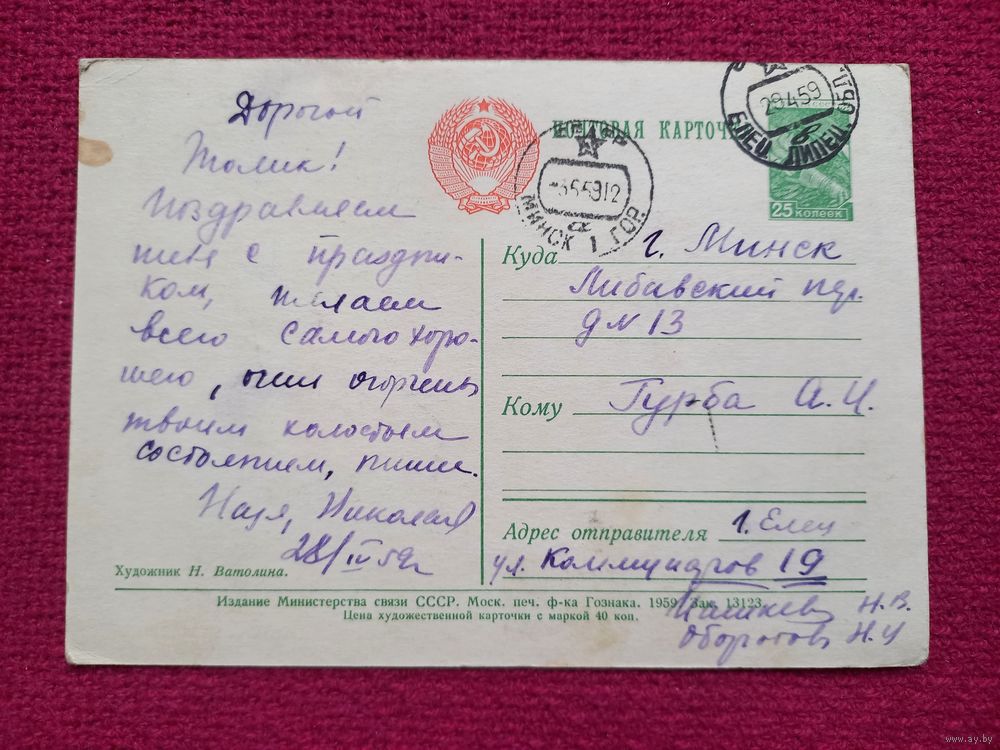 Дорогой
Толик!
Поздравляем
тебя с праздни-
ком, желаем
всего самого хоро-
шего, очень огорчены
твоим холостым
состоянием, пиши.
Надя, Николай
28/IV 59г
Художник Н. Ватолина.
ПОЧТОВАЯ КАРТОЧКА
29.4.59
ЕЛЕЦ ЛИПЕЦ. ОБЛ.
25 копеек
СССР
-3.5.59 12
МИНСК 1 ГОР.
Куда г. Минск
Либавский пер.
д N 13
Кому Гурба А.И.
Адрес отправителя г. Елец
ул. Коммунаров 19
Н.В.
Оборотов Н.И
Издание Министерства связи СССР. Моск. печ. ф-ка Гознака. 1959. Зак. 13123.
Цена художественной карточки с маркой 40 коп.
www.ay.by